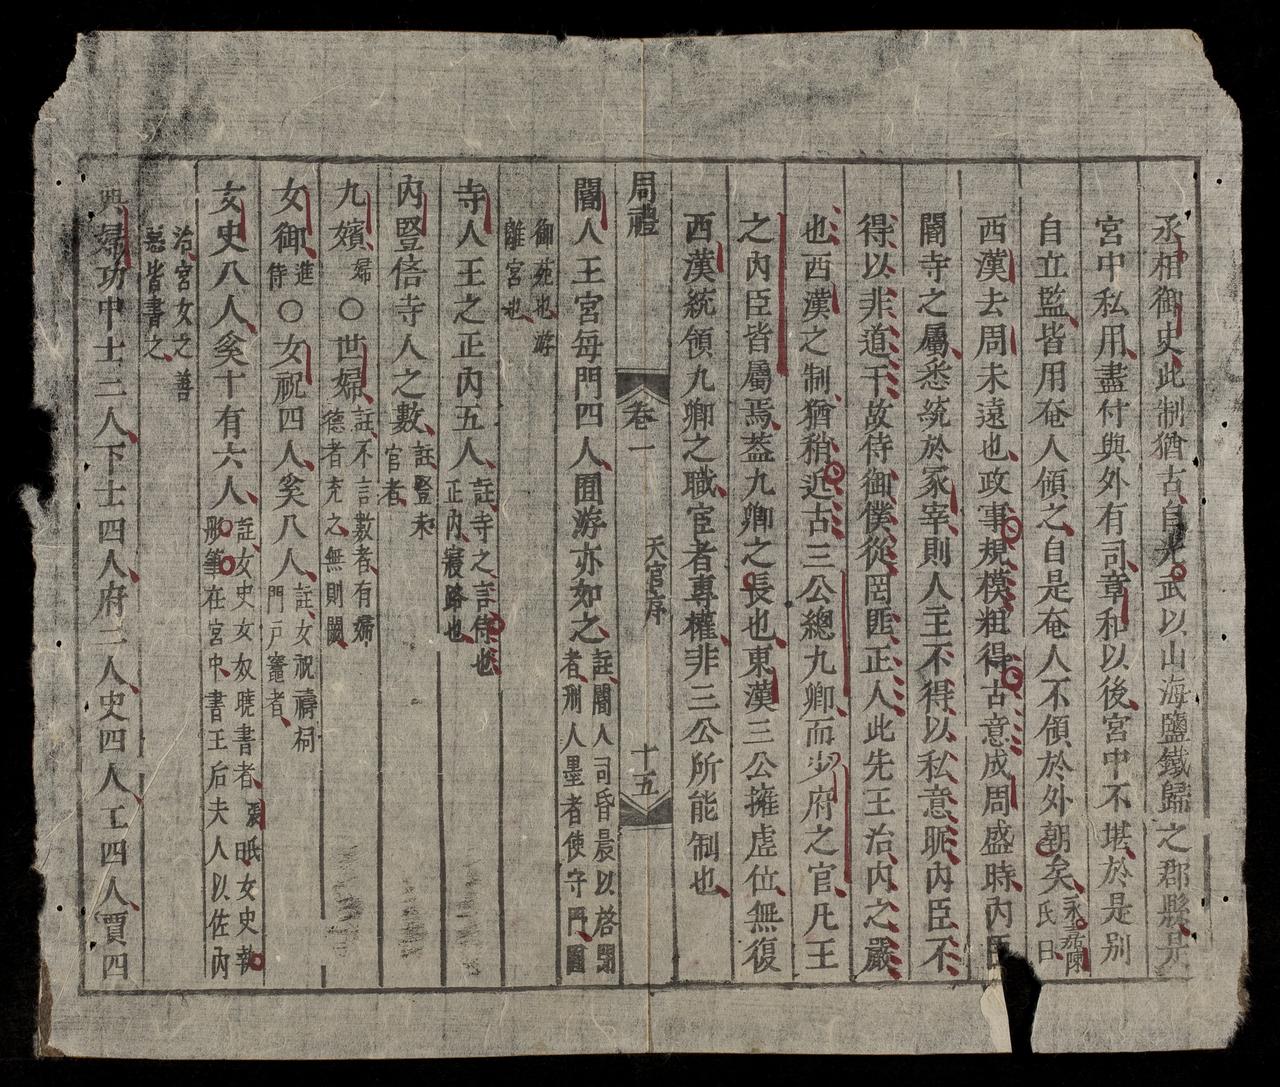 丞相御史此制猶古自光武以山海鹽鐵歸之郡縣是
宮中私用盡付與外有司章和以後宮中不堪於是別
自立監皆用奄人領之自是奄人不領於外朝矣永嘉陳
氏曰
西漢去周未遠也政事規模粗得古意成周盛時內臣
閽寺之屬悉統於冢宰則人主不得以私意昵內臣不
得以非道干故侍御僕從罔匪正人此先王治內之嚴
也西漢之制猶稍近古三公總九卿而少府之官凡王
之內臣皆屬焉蓋九卿之長也東漢三公擁虛位無復
西漢統領九卿之職宦者專權非三公所能制也
周禮 卷一 天官序 十五
閽人王宮每門四人囿游亦如之註閽人司昏晨以啓閉
者刑人墨者使守門囿
御苑也游
離宮也
寺人王之正內五人註寺之言侍也
正內寢路也
內豎倍寺人之數註豎未
官者
九嬪婦〇世婦註不言數者有婦
德者充之無則闕
女御進
侍〇女祝四人奚八人註女祝禱祠
門戶竈者
女史八人奚十有六人註女史女奴曉書者張眂女史執
彤筆在宮中書王后夫人以佐內
治宮女之善
惡皆書之
典婦功中士二人下士四人府二人史四人工四人賈四